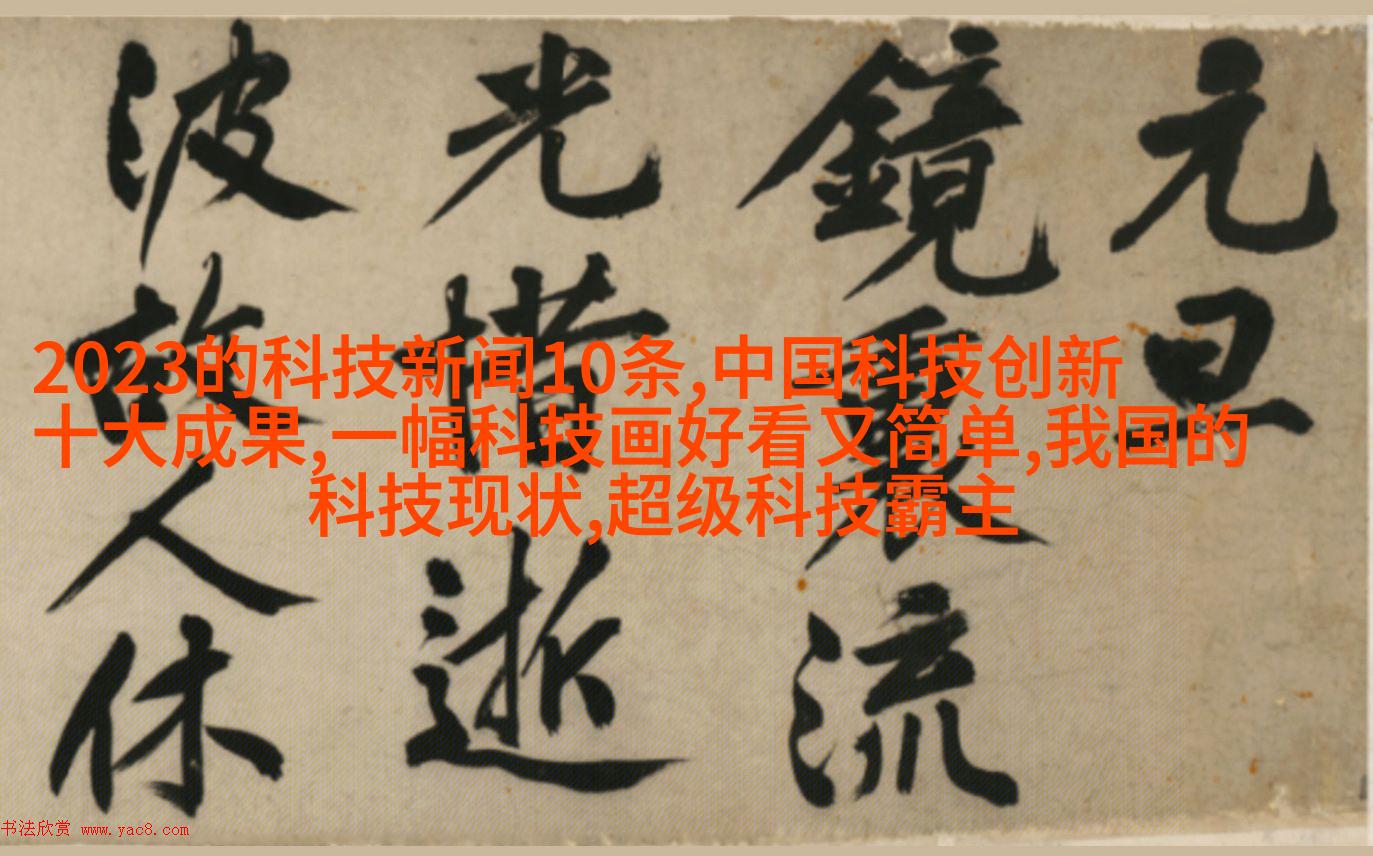 元旦
鏡裏流
光惜逝
波故人休
2023的科技新闻10条,中国科技创新
十大成果,一幅科技画好看又简单,我国的
科技现状,超级科技霸主
书法欣赏 www.yac8.com